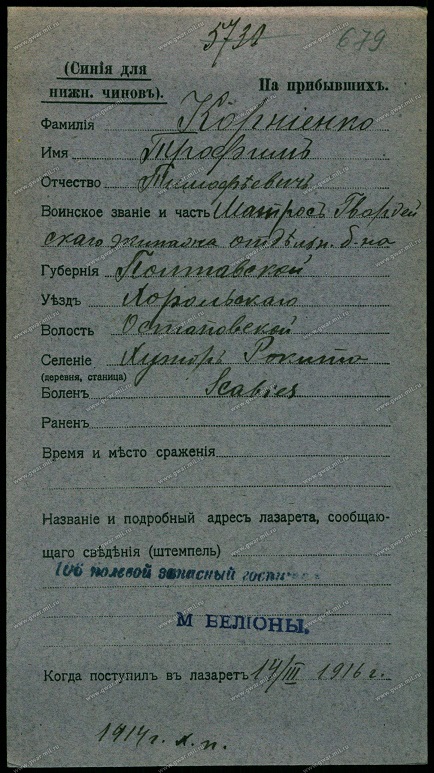 5738
679
(Синія для
нижн. чиновъ).
На прибывшихъ.
Фамилія Корніенко
Имя Трофимъ
Отчество Тимофѣевичъ
Воинское званіе и часть Матросъ Гвардей
скаго экипажа отдѣльн. б-на
Губернія Полтавской
Уѣздъ Хорольскаго
Волость Остаповской
Селеніе Хуторъ Рокита
(деревня, станица)
Боленъ Scabies
Раненъ
Время и мѣсто сраженія
Названіе и подробный адресъ лазарета, сообщаю-
щаго свѣдѣнія (штемпель)
106 полевой запасный
М БЕЛІОНЫ.
Когда поступилъ въ лазаретъ 14/III 1916 г.
1914 г. х. п.